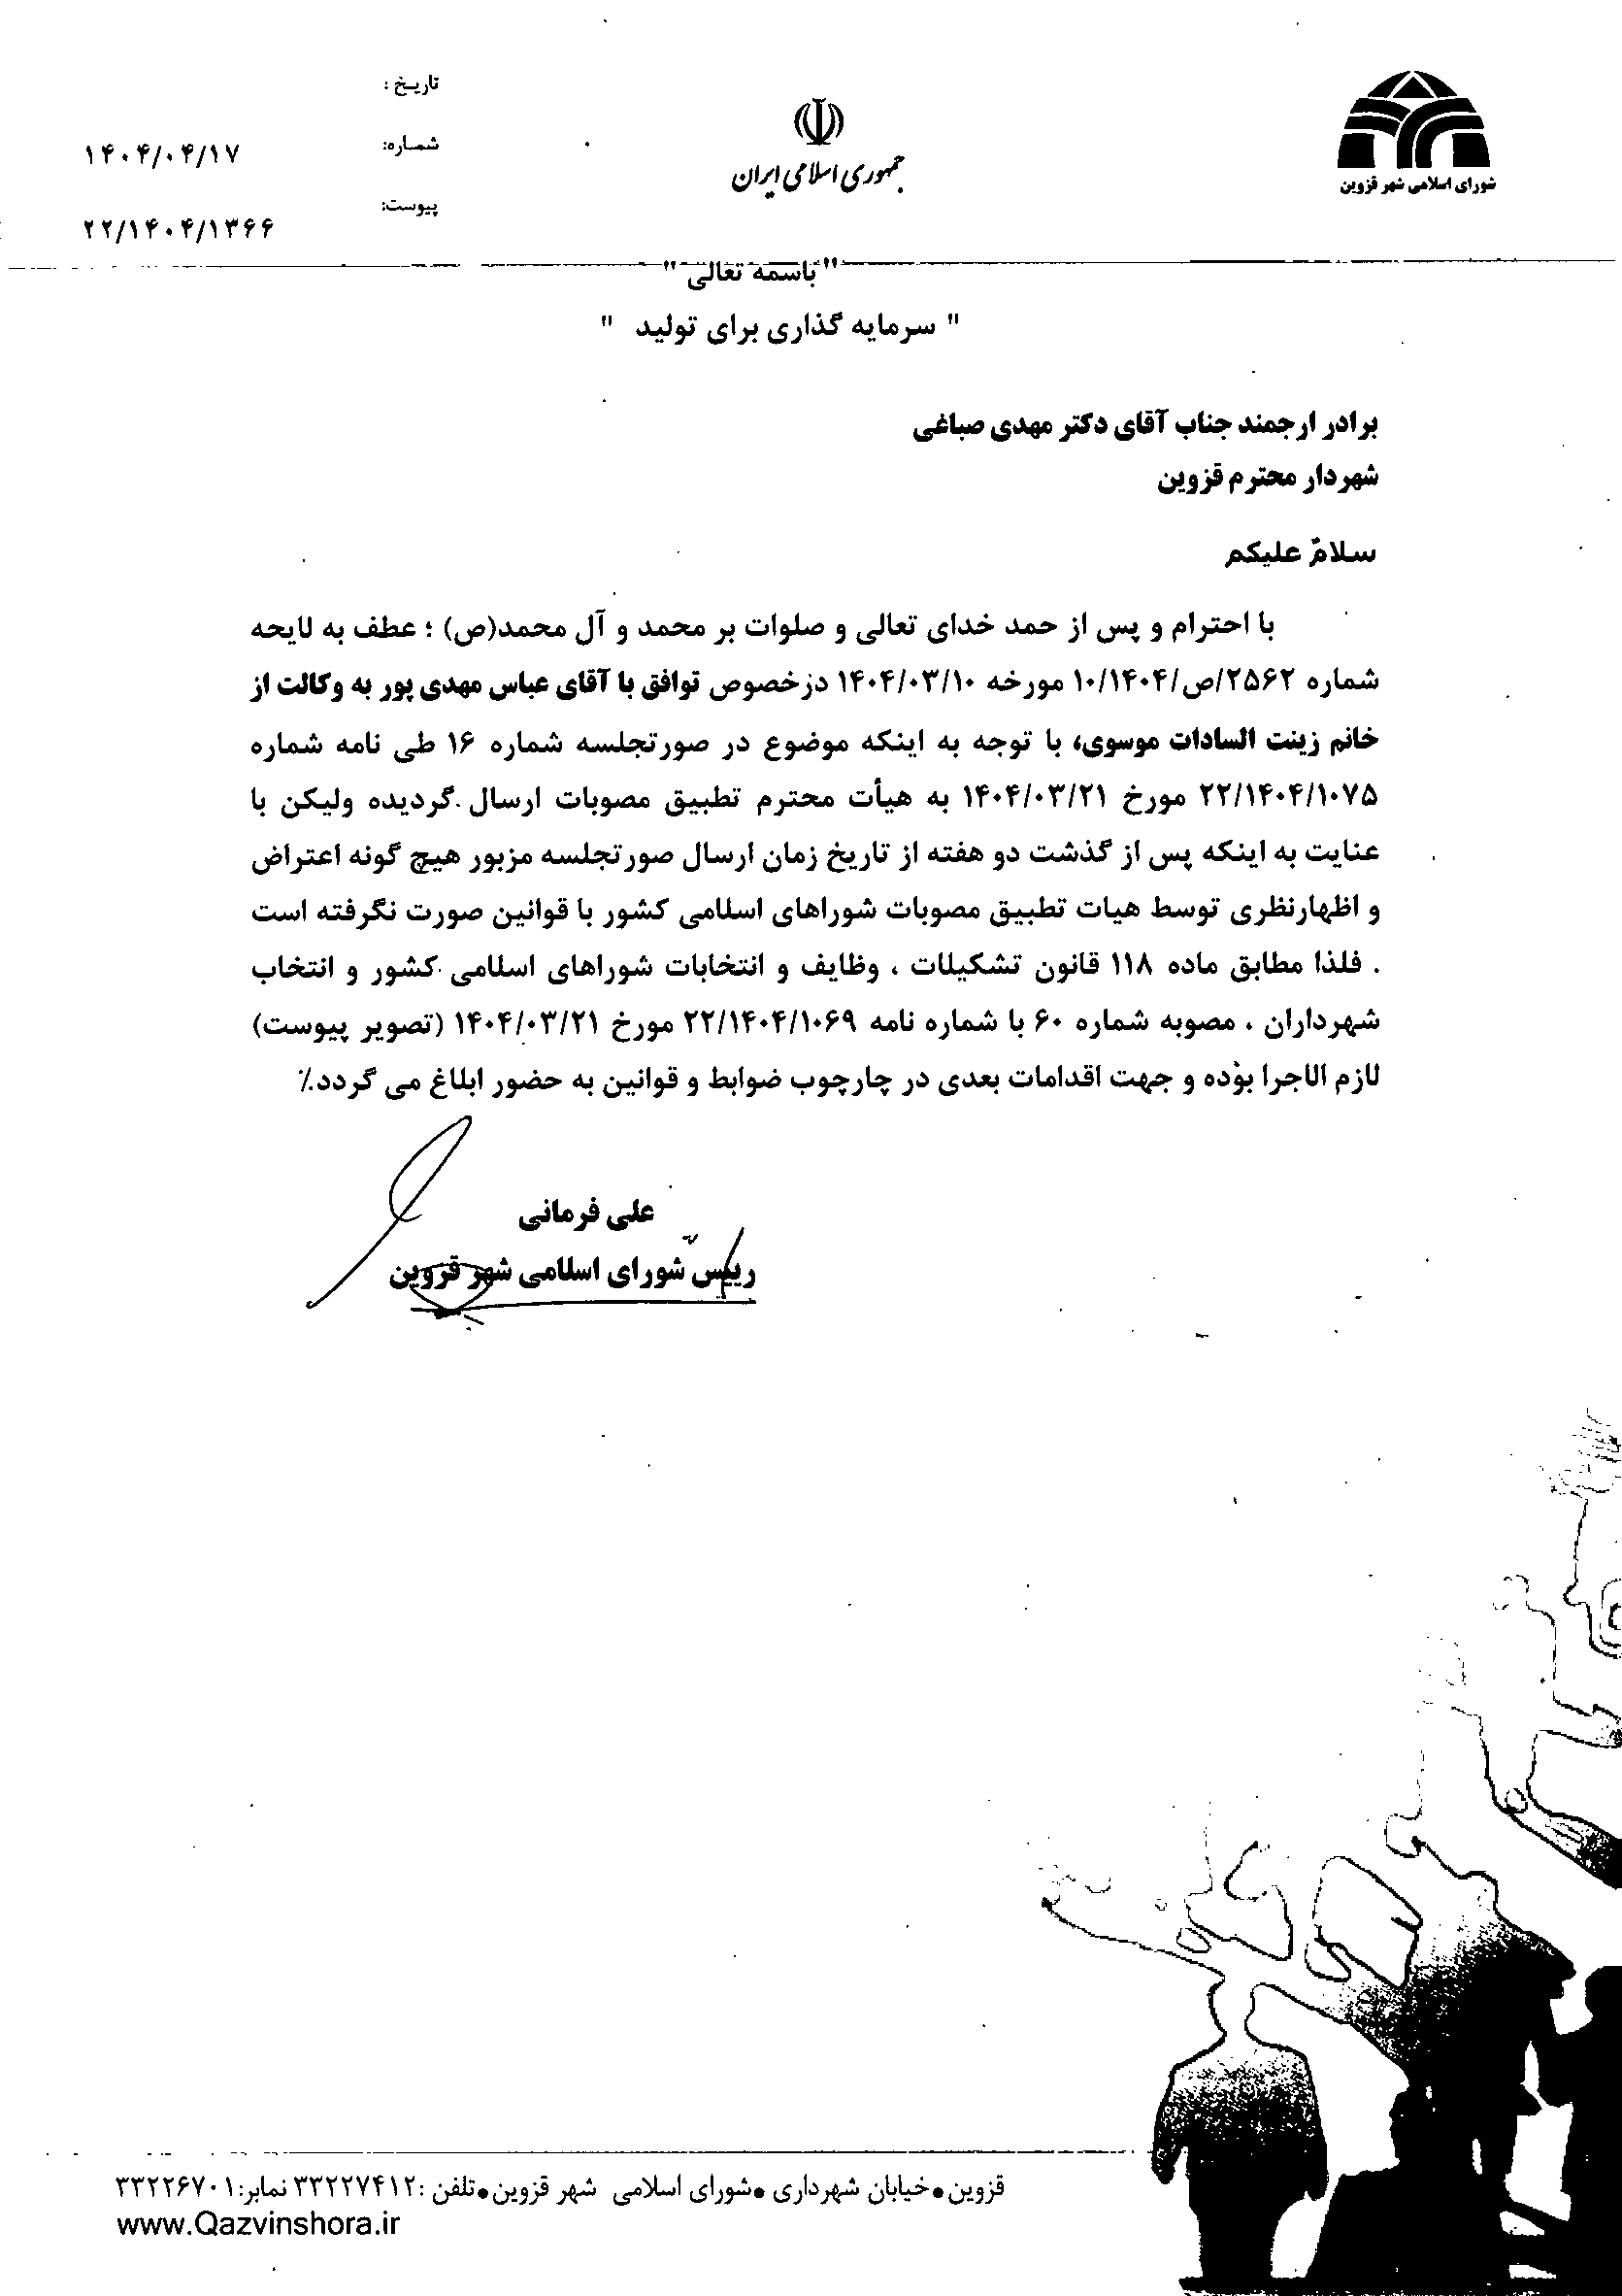 شورای اسلامی شهر قزوین
جمهوری اسلامی ایران
تاریخ :
شماره:
۱۴۰۴/۰۴/۱۷
پیوست:
۲۲/۱۴۰۴/۱۳۶۶
"باسمه تعالی"
" سرمایه گذاری برای تولید "
برادر ارجمند جناب آقای دکتر مهدی صباغی
شهردار محترم قزوین
سلام علیکم
با احترام و پس از حمد خدای تعالی و صلوات بر محمد و آل محمد(ص) ؛ عطف به لایحه
شماره ۲۵۶۲/ص/۱۰/۱۴۰۴ مورخه ۱۴۰۴/۰۳/۱۰ درخصوص توافق با آقای عباس مهدی پور به وکالت از
خانم زینت السادات موسوی، با توجه به اینکه موضوع در صورتجلسه شماره ۱۶ طی نامه شماره
۲۲/۱۴۰۴/۱۰۷۵ مورخ ۱۴۰۴/۰۳/۲۱ به هیأت محترم تطبیق مصوبات ارسال گردیده ولیکن با
عنایت به اینکه پس از گذشت دو هفته از تاریخ زمان ارسال صورتجلسه مزبور هیچ گونه اعتراض
و اظهارنظری توسط هیات تطبیق مصوبات شوراهای اسلامی کشور با قوانین صورت نگرفته است
. فلذا مطابق ماده ۱۱۸ قانون تشکیلات ، وظایف و انتخابات شوراهای اسلامی کشور و انتخاب
شهرداران ، مصوبه شماره ۶۰ با شماره نامه ۲۲/۱۴۰۴/۱۰۶۹ مورخ ۱۴۰۴/۰۳/۲۱ (تصویر پیوست)
لازم الاجرا بوده و جهت اقدامات بعدی در چارچوب ضوابط و قوانین به حضور ابلاغ می گردد٪
علی فرمانی
رییس شورای اسلامی شهر قزوین
قزوین●خیابان شهرداری ●شورای اسلامی شهر قزوین●تلفن :۳۳۲۲۷۴۱۲ نمابر:۳۳۲۲۶۷۰۱
www.Qazvinshora.ir